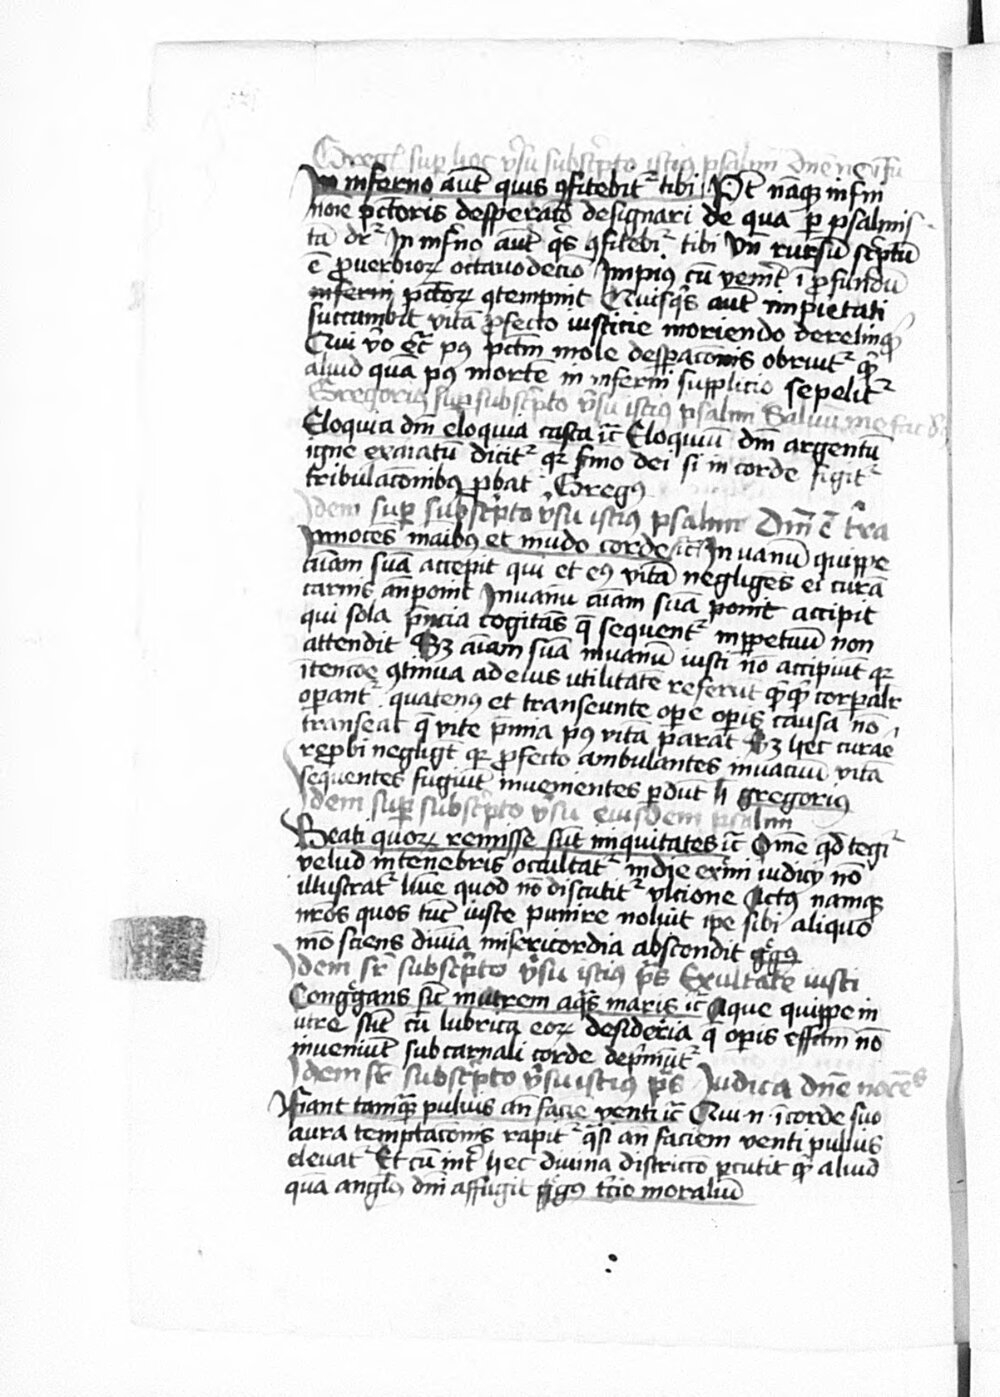 Gregꝰ sup hoc v̉su subsc̉pto istiꝰ psalmi dn̄e ne ī fu
In inferno aut̄ quis ꝯfitebit᷑ tibi Pt̄ nāqꝫ inf̉ni
noīe pctoris despeat̄o designari de qua p psalmis
ta dr᷑ In inf̉no aut̄ qͥs ꝯfitebi᷑ tibi Vn̄ rursū sc̉ptū
ē ꝓuerbioꝝ octauodecīo Impiꝰ cū venīt ī ꝓfundū
inferni pctoꝝ ꝯtempnit Quisqͥs aut̄ impietati
succumbit vitā ꝓfecto iusticie moriendo derelinqͥ
Qui v̉o ec̄ pꝰ pctm̄ mole despaconis obruit᷑ qͥ
aliud quā pꝰ mortē in inferni supplicio sepelit᷑
Gregoriꝰ sup subsc̉pto v̉su istiꝰ psalmi Saluū me fac
Eloquia dn̄i eloquia casta ic̄ Eloquiū dn̄i argentū
igne exaiatū dicit᷑ qꝛ s̉mo dei si in corde figit᷑
tribulaconibꝰ ꝓbat᷑ Gregꝰ
Idem sup subsc̉pto v̉su istiꝰ psalmi Dn̄i ē t̉ra
Innocēs maībꝰ et mūdo corde ic̄ In vanū quippe
aīam suā accepit qui et eꝰ vitā negligēs ei curā
carnis an̄ponit Inuanū aīam suā ponit accipit
qui sola p̄ncia cogitās q̄ sequent᷑ inppetuū non
attendit Sꝫ aīam suā inuanū iusti nō accipiūt qꝛ
ītencōe ꝯtinua ad eius utilitatē referūt qͥqͥ corpalr
opant᷑ quatenꝰ et transeunte ope opis causa nō
transeat q̄ vite p̄mia pꝰ vitā parat Sꝫ hec curae
reꝓbi negligūt qꝛ ꝓfecto ambulantes inuacuū vitā
sequentes fugiūt inuenientes pdūt h̄ gregoriꝰ
Idem sup subsc̉pto v̉su eiusdem psalmi
Beati quoꝝ remisse sūt iniquitates ic̄ Om̄e qd̄ tegi᷑
velud intenebris occultat᷑ indie ext̉mi iudicij nō
illustrat᷑ hīne quod nō discutit᷑ vlcione Actꝰ namqꝫ
nr̄os quos tūc iuste punire noluit ip̄e sibi aliquo
mō sciens diuīa misericordia abscondit g̉gꝰ
Idem sr̄ subsc̉pto v̉su istiꝰ ps̄ Exultate iusti
Cong̉gans sic̄ inutrem aqͣs maris ic̄ Aque quippe in
utre sūt cū lubrica eoꝝ desideria q̄ opis eff̄cm nō
inueniūt sub carnali corde dep̉mūt᷑
Idem sr̄ subsc̉pto v̉su istiꝰ ps̄ Iudica dn̄e nocēs
Fiant tamqͣ puluis an̄ facie venti ic̄ Qui n̄ ī corde suo
aura temptaconis rapit᷑ qͣsi an̄ faciem venti puluis
eleuat᷑ Et cū int̉ hec diuina districco pcutit qͥ aliud
quā anglꝰ dn̄i affligit g̉gꝰ t̉cio moraliū